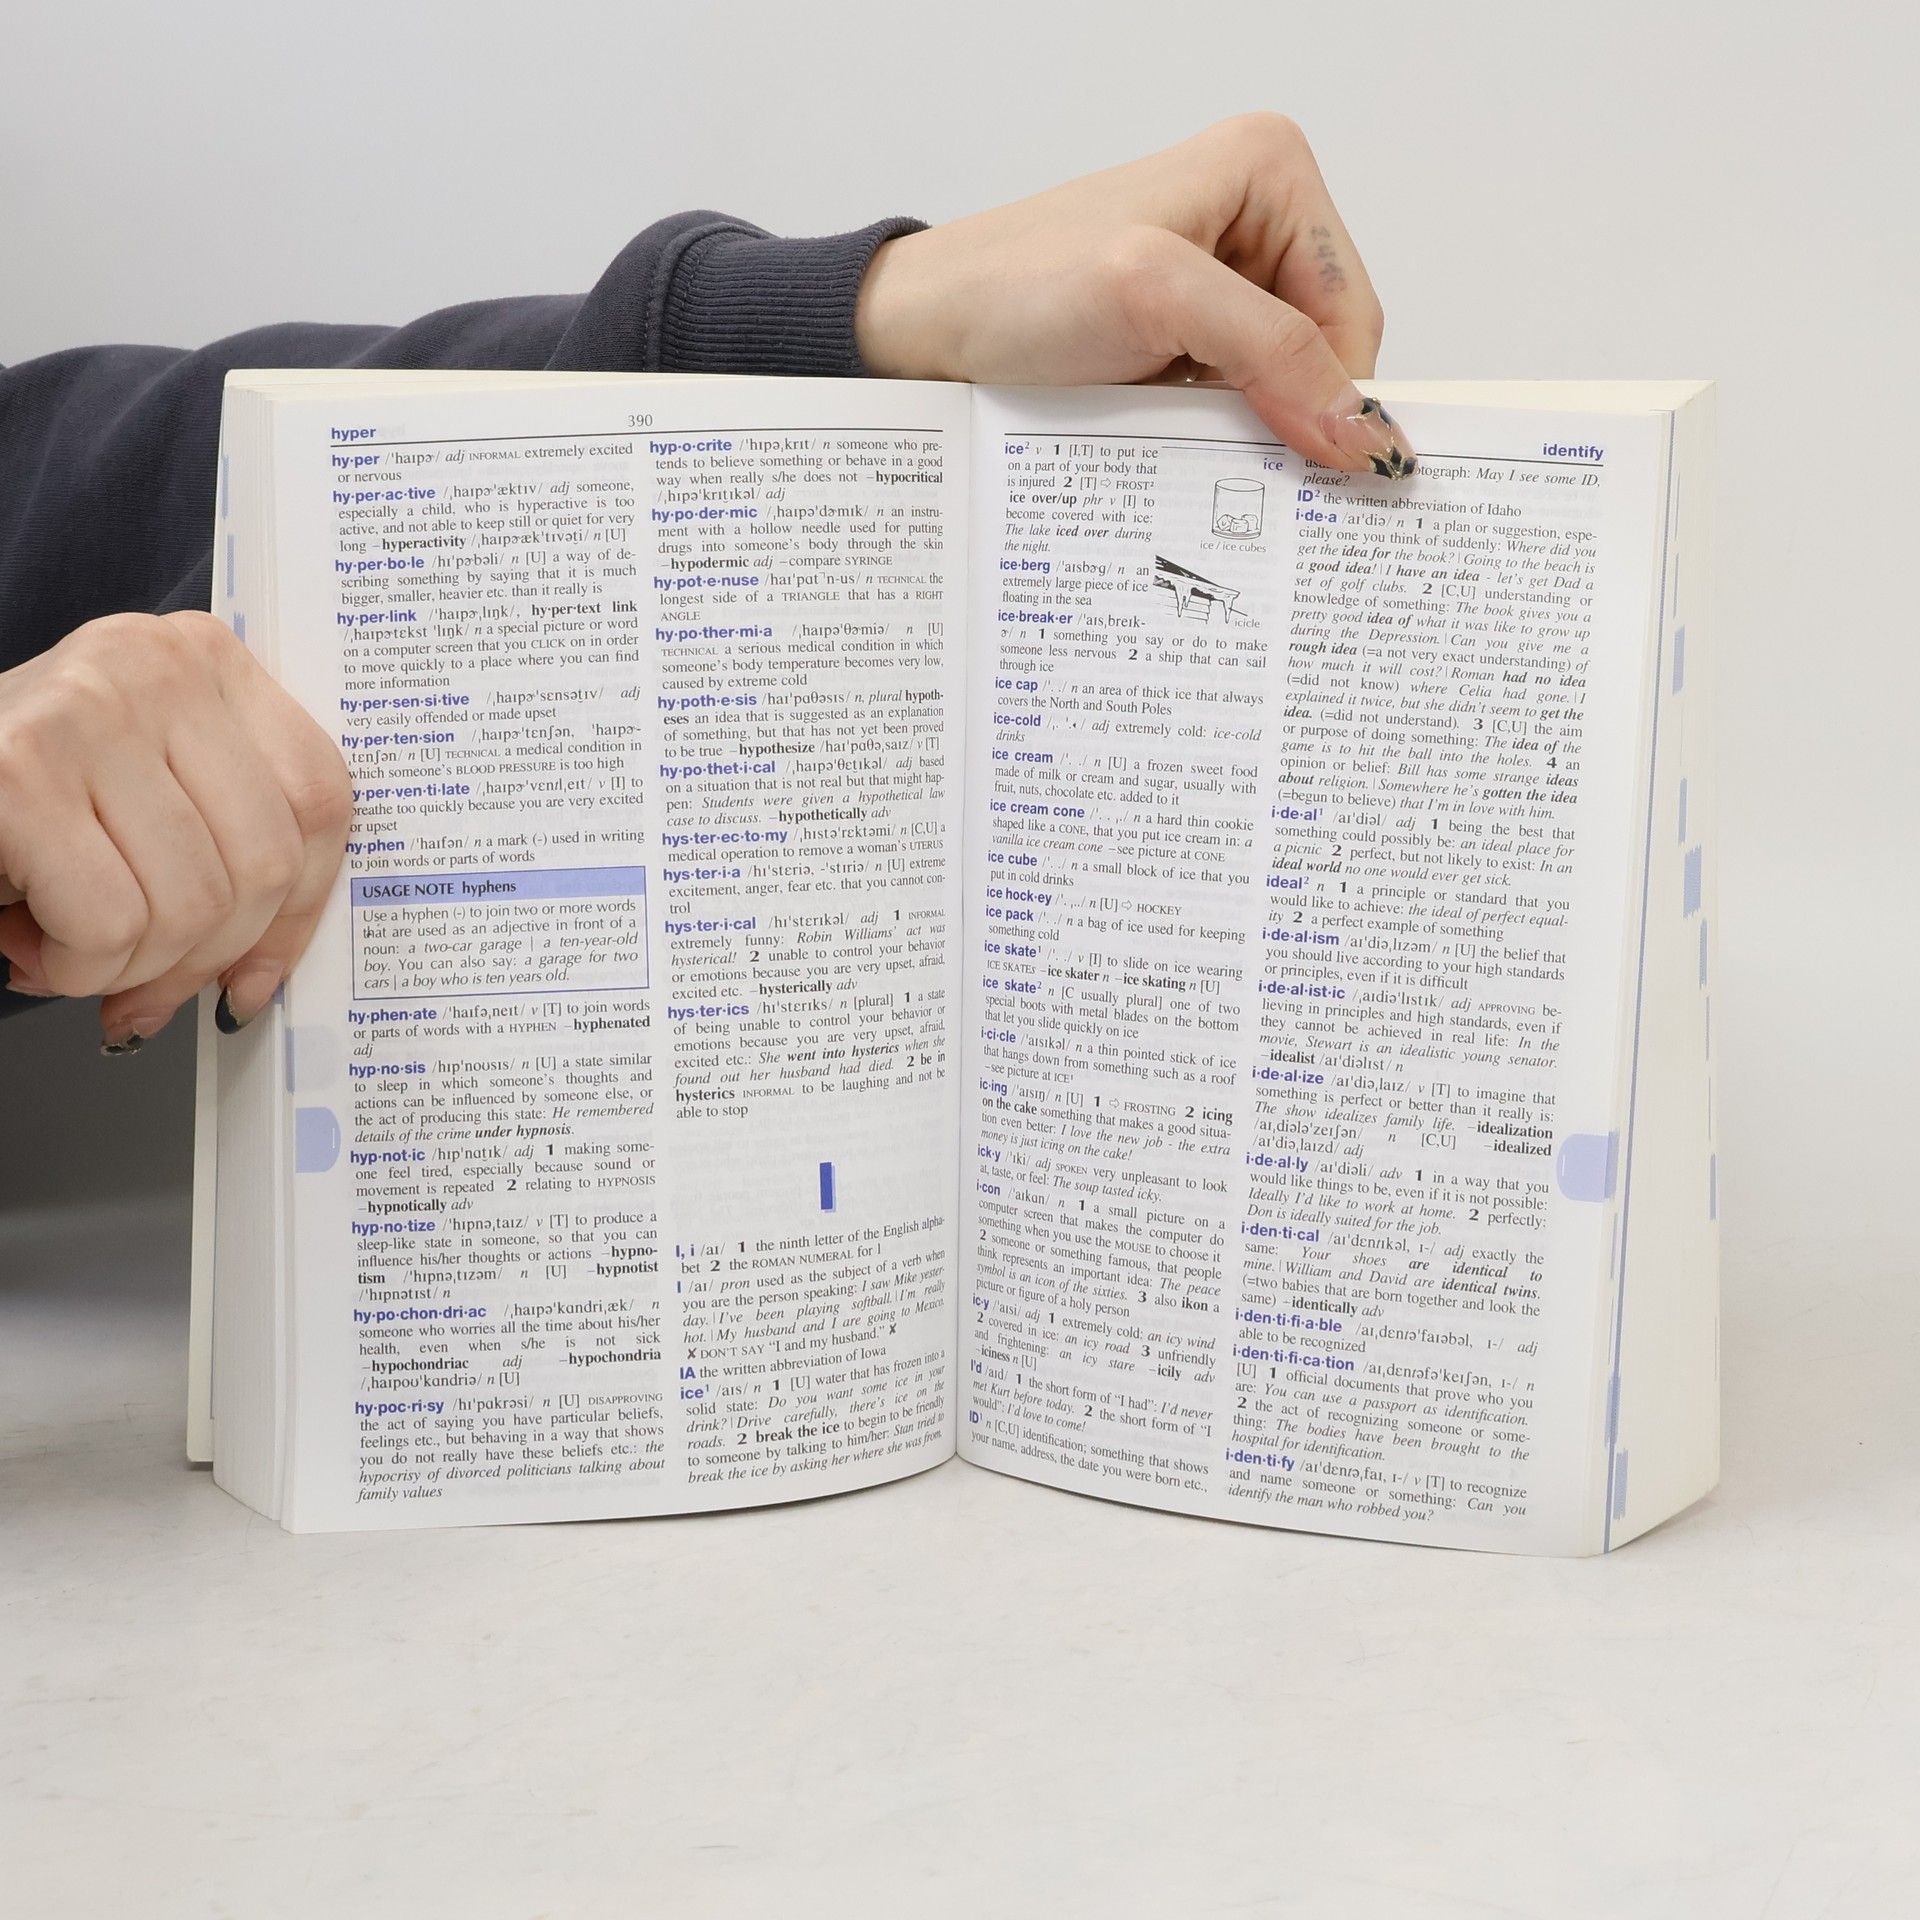 hyper
390
hy·per /ˈhaɪpɚ/ adj INFORMAL extremely excited
or nervous
hy·per·ac·tive /ˌhaɪpɚˈæktɪv/ adj someone,
especially a child, who is hyperactive is too
active, and not able to keep still or quiet for very
long –hyperactivity /ˌhaɪpɚækˈtɪvət̬i/ n [U]
hy·per·bo·le /hɪˈpɚbəli/ n [U] a way of de-
scribing something by saying that it is much
bigger, smaller, heavier etc. than it really is
hy·per·link /ˈhaɪpɚˌlɪŋk/, hy·per·text link
/ˌhaɪpɚtɛkst ˈlɪŋk/ n a special picture or word
on a computer screen that you CLICK on in order
to move quickly to a place where you can find
more information
hy·per·sen·si·tive /ˌhaɪpɚˈsɛnsət̬ɪv/ adj
very easily offended or made upset
hy·per·ten·sion /ˌhaɪpɚˈtɛnʃən, ˈhaɪpɚ-
ˌtɛnʃən/ n [U] TECHNICAL a medical condition in
which someone's BLOOD PRESSURE is too high
y·per·ven·ti·late /ˌhaɪpɚˈvɛntlˌeɪt/ v [I] to
breathe too quickly because you are very excited
or upset
hy·phen /ˈhaɪfən/ n a mark (-) used in writing
to join words or parts of words
USAGE NOTE hyphens
Use a hyphen (-) to join two or more words
that are used as an adjective in front of a
noun: a two-car garage | a ten-year-old
boy. You can also say: a garage for two
cars | a boy who is ten years old.
hy·phen·ate /ˈhaɪfəˌneɪt/ v [T] to join words
or parts of words with a HYPHEN –hyphenated
adj
hyp·no·sis /hɪpˈnoʊsɪs/ n [U] a state similar
to sleep in which someone's thoughts and
actions can be influenced by someone else, or
the act of producing this state: He remembered
details of the crime under hypnosis.
hyp·not·ic /hɪpˈnɑt̬ɪk/ adj 1 making some-
one feel tired, especially because sound or
movement is repeated 2 relating to HYPNOSIS
–hypnotically adv
hyp·no·tize /ˈhɪpnəˌtaɪz/ v [T] to produce a
sleep-like state in someone, so that you can
influence his/her thoughts or actions –hypno-
tism /ˈhɪpnəˌtɪzəm/ n [U] –hypnotist
/ˈhɪpnətɪst/ n
hy·po·chon·dri·ac /ˌhaɪpəˈkɑndriˌæk/ n
someone who worries all the time about his/her
health, even when s/he is not sick
–hypochondriac adj –hypochondria
/ˌhaɪpoʊˈkɑndriə/ n [U]
hy·poc·ri·sy /hɪˈpɑkrəsi/ n [U] DISAPPROVING
the act of saying you have particular beliefs,
feelings etc., but behaving in a way that shows
you do not really have these beliefs etc.: the
hypocrisy of divorced politicians talking about
family values
hyp·o·crite /ˈhɪpəˌkrɪt/ n someone who pre-
tends to believe something or behave in a good
way when really s/he does not –hypocritical
/ˌhɪpəˈkrɪt̬ɪkəl/ adj
hy·po·der·mic /ˌhaɪpəˈdɚmɪk/ n an instru-
ment with a hollow needle used for putting
drugs into someone's body through the skin
–hypodermic adj –compare SYRINGE
hy·pot·e·nuse /haɪˈpɑt˺n-us/ n TECHNICAL the
longest side of a TRIANGLE that has a RIGHT
ANGLE
hy·po·ther·mi·a /ˌhaɪpəˈθɚmiə/ n [U]
TECHNICAL a serious medical condition in which
someone's body temperature becomes very low,
caused by extreme cold
hy·poth·e·sis /haɪˈpɑθəsɪs/ n, plural hypoth-
eses an idea that is suggested as an explanation
of something, but that has not yet been proved
to be true –hypothesize /haɪˈpɑθəˌsaɪz/ v [T]
hy·po·thet·i·cal /ˌhaɪpəˈθɛt̬ɪkəl/ adj based
on a situation that is not real but that might hap-
pen: Students were given a hypothetical law
case to discuss. –hypothetically adv
hys·ter·ec·to·my /ˌhɪstəˈrɛktəmi/ n [C,U] a
medical operation to remove a woman's UTERUS
hys·ter·i·a /hɪˈstɛriə, -ˈstɪriə/ n [U] extreme
excitement, anger, fear etc. that you cannot con-
trol
hys·ter·i·cal /hɪˈstɛrɪkəl/ adj 1 INFORMAL
extremely funny: Robin Williams' act was
hysterical! 2 unable to control your behavior
or emotions because you are very upset, afraid,
excited etc. –hysterically adv
hys·ter·ics /hɪˈstɛrɪks/ n [plural] 1 a state
of being unable to control your behavior or
emotions because you are very upset, afraid,
excited etc.: She went into hysterics when she
found out her husband had died. 2 be in
hysterics INFORMAL to be laughing and not be
able to stop
I
I, i /aɪ/ 1 the ninth letter of the English alpha-
bet 2 the ROMAN NUMERAL for 1
I /aɪ/ pron used as the subject of a verb when
you are the person speaking: I saw Mike yester-
day. | I've been playing softball. | I'm really
hot. | My husband and I are going to Mexico.
✗ DON'T SAY "I and my husband." ✗
IA the written abbreviation of Iowa
ice¹ /aɪs/ n 1 [U] water that has frozen into a
solid state: Do you want some ice in your
drink? | Drive carefully, there's ice on the
roads. 2 break the ice to begin to be friendly
to someone by talking to him/her: Stan tried to
break the ice by asking her where she was from.
identify
ice² v 1 [I,T] to put ice
on a part of your body that
is injured 2 [T] ⇨ FROST²
ice over/up phr v [I] to
become covered with ice:
The lake iced over during
the night.
ice
ice / ice cubes
icicle
ice·berg /ˈaɪsbɚg/ n an
extremely large piece of ice
floating in the sea
ice·break·er /ˈaɪsˌbreɪk-
ɚ/ n 1 something you say or do to make
someone less nervous 2 a ship that can sail
through ice
ice cap /ˈ. ./ n an area of thick ice that always
covers the North and South Poles
ice-cold /ˌ. ˈ.◂/ adj extremely cold: ice-cold
drinks
ice cream /ˈ. ./ n [U] a frozen sweet food
made of milk or cream and sugar, usually with
fruit, nuts, chocolate etc. added to it
ice cream cone /ˈ. . ˌ./ n a hard thin cookie
shaped like a CONE, that you put ice cream in: a
vanilla ice cream cone –see picture at CONE
ice cube /ˈ. ./ n a small block of ice that you
put in cold drinks
ice hock·ey /ˈ. ˌ../ n [U] ⇨ HOCKEY
ice pack /ˈ. ./ n a bag of ice used for keeping
something cold
ice skate¹ /ˈ. ./ v [I] to slide on ice wearing
ICE SKATES –ice skater n –ice skating n [U]
ice skate² n [C usually plural] one of two
special boots with metal blades on the bottom
that let you slide quickly on ice
i·ci·cle /ˈaɪsɪkəl/ n a thin pointed stick of ice
that hangs down from something such as a roof
–see picture at ICE¹
ic·ing /ˈaɪsɪŋ/ n [U] 1 ⇨ FROSTING 2 icing
on the cake something that makes a good situa-
tion even better: I love the new job - the extra
money is just icing on the cake!
ick·y /ˈɪki/ adj SPOKEN very unpleasant to look
at, taste, or feel: The soup tasted icky.
i·con /ˈaɪkɑn/ n 1 a small picture on a
computer screen that makes the computer do
something when you use the MOUSE to choose it
2 someone or something famous, that people
think represents an important idea: The peace
symbol is an icon of the sixties. 3 also ikon a
picture or figure of a holy person
ic·y /ˈaɪsi/ adj 1 extremely cold: an icy wind
2 covered in ice: an icy road 3 unfriendly
and frightening: an icy stare –icily adv
–iciness n [U]
I'd /aɪd/ 1 the short form of "I had": I'd never
met Kurt before today. 2 the short form of "I
would": I'd love to come!
ID¹ n [C,U] identification; something that shows
your name, address, the date you were born etc.,
otograph: May I see some ID,
please?
ID² the written abbreviation of Idaho
i·de·a /aɪˈdiə/ n 1 a plan or suggestion, espe-
cially one you think of suddenly: Where did you
get the idea for the book? | Going to the beach is
a good idea! | I have an idea - let's get Dad a
set of golf clubs. 2 [C,U] understanding or
knowledge of something: The book gives you a
pretty good idea of what it was like to grow up
during the Depression. | Can you give me a
rough idea (=a not very exact understanding) of
how much it will cost? | Roman had no idea
(=did not know) where Celia had gone. | I
explained it twice, but she didn't seem to get the
idea. (=did not understand). 3 [C,U] the aim
or purpose of doing something: The idea of the
game is to hit the ball into the holes. 4 an
opinion or belief: Bill has some strange ideas
about religion. | Somewhere he's gotten the idea
(=begun to believe) that I'm in love with him.
i·de·al¹ /aɪˈdiəl/ adj 1 being the best that
something could possibly be: an ideal place for
a picnic 2 perfect, but not likely to exist: In an
ideal world no one would ever get sick.
ideal² n 1 a principle or standard that you
would like to achieve: the ideal of perfect equal-
ity 2 a perfect example of something
i·de·al·ism /aɪˈdiəˌlɪzəm/ n [U] the belief that
you should live according to your high standards
or principles, even if it is difficult
i·de·al·ist·ic /ˌaɪdiəˈlɪstɪk/ adj APPROVING be-
lieving in principles and high standards, even if
they cannot be achieved in real life: In the
movie, Stewart is an idealistic young senator.
–idealist /aɪˈdiəlɪst/ n
i·de·al·ize /aɪˈdiəˌlaɪz/ v [T] to imagine that
something is perfect or better than it really is:
The show idealizes family life. –idealization
/aɪˌdiələˈzeɪʃən/ n [C,U] –idealized
/aɪˈdiəˌlaɪzd/ adj
i·de·al·ly /aɪˈdiəli/ adv 1 in a way that you
would like things to be, even if it is not possible:
Ideally I'd like to work at home. 2 perfectly:
Don is ideally suited for the job.
i·den·ti·cal /aɪˈdɛntɪkəl, ɪ-/ adj exactly the
same: Your shoes are identical to
mine. | William and David are identical twins.
(=two babies that are born together and look the
same) –identically adv
i·den·ti·fi·a·ble /aɪˌdɛntəˈfaɪəbəl, ɪ-/ adj
able to be recognized
i·den·ti·fi·ca·tion /aɪˌdɛntəfəˈkeɪʃən, ɪ-/ n
[U] 1 official documents that prove who you
are: You can use a passport as identification.
2 the act of recognizing someone or some-
thing: The bodies have been brought to the
hospital for identification.
i·den·ti·fy /aɪˈdɛntəˌfaɪ, ɪ-/ v [T] to recognize
and name someone or something: Can you
identify the man who robbed you?